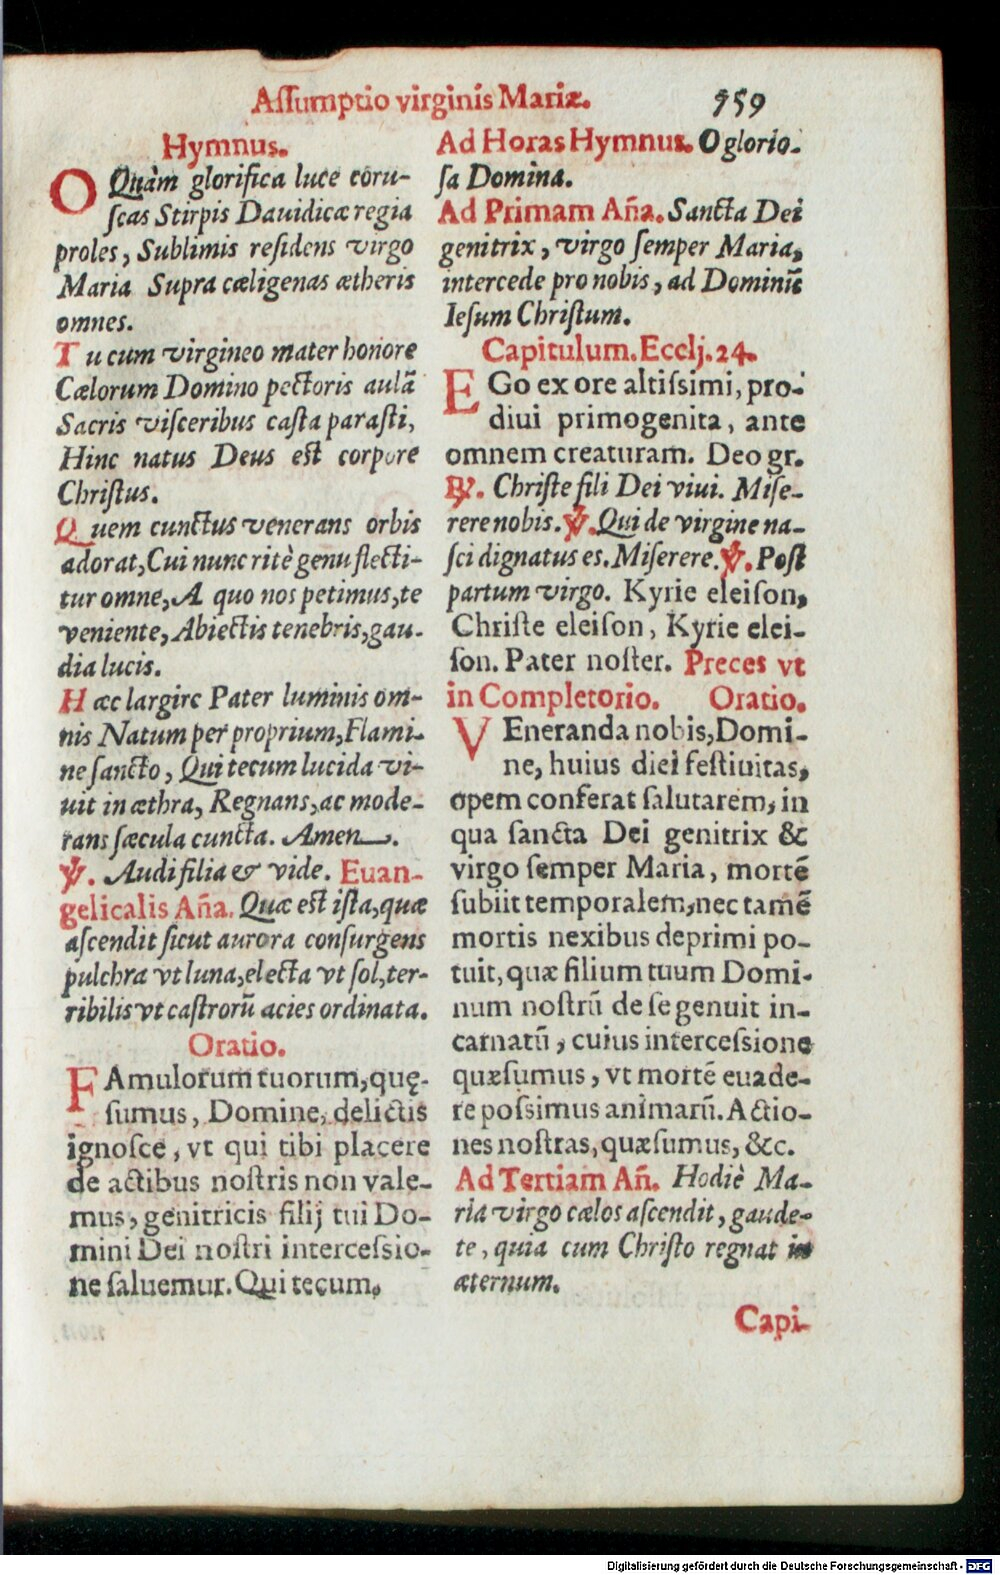 Assumptio virginis Mariæ. 759
Hymnus.
O Quàm glorifica luce coru-
scas Stirpis Dauidicæ regia
proles, Sublimis residens virgo
Maria Supra cæligenas ætheris
omnes.
Tu cum virgineo mater honore
Cælorum Domino pectoris aulã
Sacris visceribus casta parasti,
Hinc natus Deus est corpore
Christus.
Quem cunctus venerans orbis
adorat, Cui nunc ritè genu flecti-
tur omne, A quo nos petimus, te
veniente, Abiectis tenebris, gau-
dia lucis.
Hæc largire Pater luminis om-
nis Natum per proprium, Flami-
ne sancto, Qui tecum lucida vi-
uit in æthra, Regnans, ac mode-
rans sæcula cuncta. Amen.
℣. Audi filia & vide. Euan-
gelicalis Añа. Quæ est ista, quæ
ascendit sicut aurora consurgens
pulchra vt luna, electa vt sol, ter-
ribilis vt castrorũ acies ordinata.
Oratio.
FAmulorum tuorum, quę-
sumus, Domine, delictis
ignosce, vt qui tibi placere
de actibus nostris non vale-
mus, genitricis filij tui Do-
mini Dei nostri intercessio-
ne saluemur. Qui tecum.
Ad Horas Hymnus. O glorio-
sa Domina.
Ad Primam Aña. Sancta Dei
genitrix, virgo semper Maria,
intercede pro nobis, ad Dominũ
Iesum Christum.
Capitulum.Ecclj. 24.
EGo ex ore altissimi, pro-
diui primogenita, ante
omnem creaturam. Deo gr.
℟. Christe fili Dei viui. Mise-
rere nobis. ℣. Qui de virgine na-
sci dignatus es. Miserere. ℣. Post
partum virgo. Kyrie eleison,
Christe eleison, Kyrie elei-
son. Pater noster. Preces vt
in Completorio. Oratio.
VEneranda nobis, Domi-
ne, huius diei festiuitas,
opem conferat salutarem, in
qua sancta Dei genitrix &
virgo semper Maria, mortẽ
subiit temporalem, nec tamẽ
mortis nexibus deprimi po-
tuit, quæ filium tuum Domi-
num nostrũ de se genuit in-
carnatũ, cuius intercessione
quæsumus, vt mortẽ euade-
re possimus animarũ. Actio-
nes nostras, quæsumus, &c.
Ad Tertiam Añ. Hodiè Ma-
ria virgo cælos ascendit, gaude-
te, quia cum Christo regnat in
æternum.
Capi-
Digitalisierung gefördert durch die Deutsche Forschungsgemeinschaft - DFG